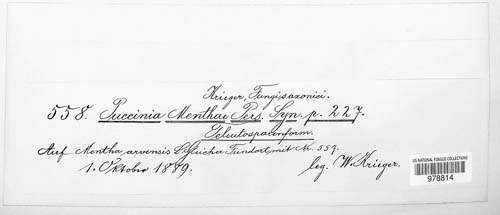 Krieger, Fungi saxonici.
558. Puccinia Menthae Pers. Syn. p. 227.
Teleutosporenform.
Auf Mentha arvensis L. Gleicher Fundort, mit No. 559.
1. Oktober 1889.
leg. W. Krieger.
US NATIONAL FUNGUS COLLECTIONS
978814